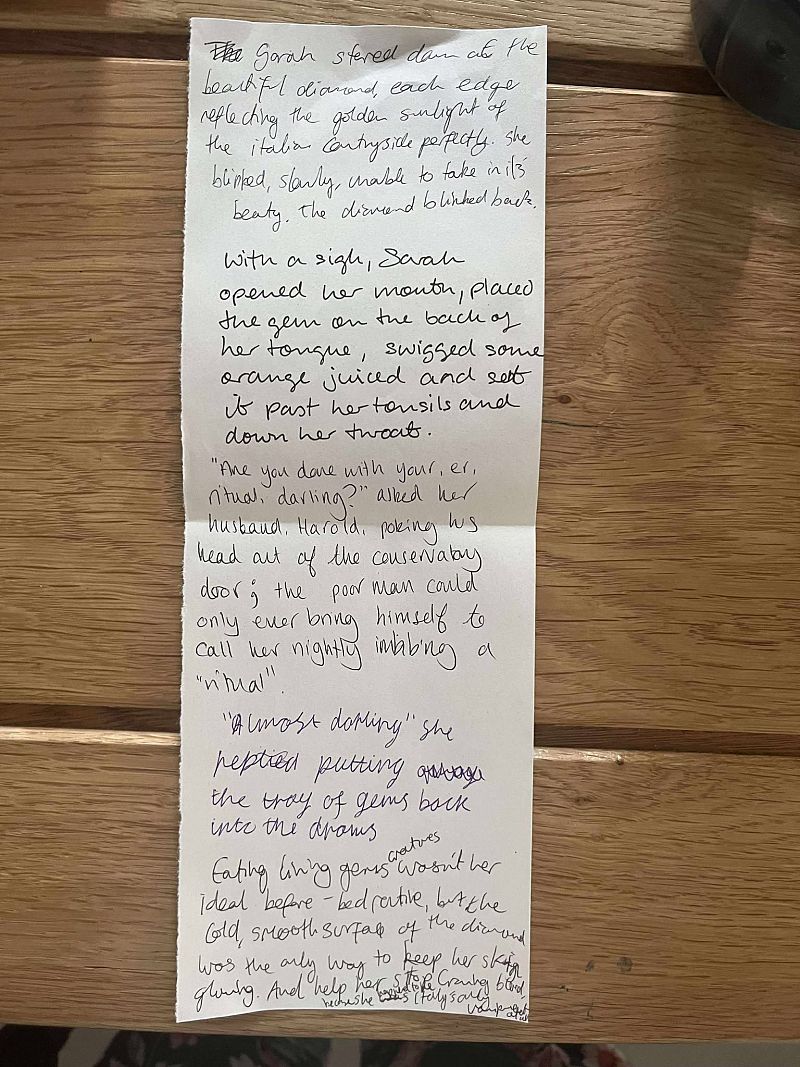 Sarah stered down at the
beautiful diamond, each edge
reflecting the golden sunlight of
the italian Contryside perfectly. She
blinked, slowly, unable to take in it's
beaty. The diamond blinked back.
With a sigh, Sarah
opened her mouth, placed
the gem on the back of
her tongue, swigged some
orange juiced and sett
it past her tonsils and
down her throat.
"Are you done with your, er,
ritual, darling?" asked her
husband, Harold, poking his
head out of the conservatory
door; the poor man could
only ever bring himself to
call her nightly imbibing a
"ritual".
"Almost darling" she
replied putting
the tray of gems back
into the draws
Eating living gems creatures wasn't her
ideal before-bed routine, but the
Cold, smooth surface of the diamond
was the only way to keep her skin
glowing. And help her stop Craving blood,
because she happened to be Italy's only
vampire